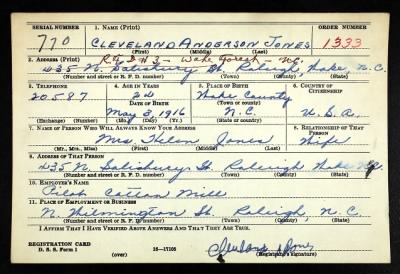 SERIAL NUMBER 1. NAME (Print) ORDER NUMBER
770 CLEVELAND ANDERSON JONES 1333
2. ADDRESS (Print) Rt # 3 - Wake Forest - N.C.
435 N. Salisbury St. Raleigh, Wake N.C.
(Number and street or R. F. D. number) (Town) (County) (State)
3. TELEPHONE 4. AGE IN YEARS 5. PLACE OF BIRTH 6. COUNTRY OF CITIZENSHIP
20587 24 Wake County
DATE OF BIRTH
May 3, 1916 N.C. U.S.A.
(Exchange) (Number) (Mo.) (Day) (Yr.) (State or country)
7. NAME OF PERSON WHO WILL ALWAYS KNOW YOUR ADDRESS 8. RELATIONSHIP OF THAT PERSON
Mrs. Jones Wife
(Mr., Mrs., Miss) (First) (Middle) (Last)
9. ADDRESS OF THAT PERSON
435 N. Salisbury St. Raleigh Wake N.C.
(Number and street or R. F. D. number) (Town) (County) (State)
10. EMPLOYER'S NAME
Pilot Cotton Mill
11. PLACE OF EMPLOYMENT OR BUSINESS
N. Wilmington St. Raleigh, N.C.
(Number and street or R. F. D. number) (Town) (County) (State)
I AFFIRM THAT I HAVE VERIFIED ABOVE ANSWERS AND THAT THEY ARE TRUE.
REGISTRATION CARD
D. S. S. Form 1 16-17105 Cleveland Jones
(over) (Registrant's signature)